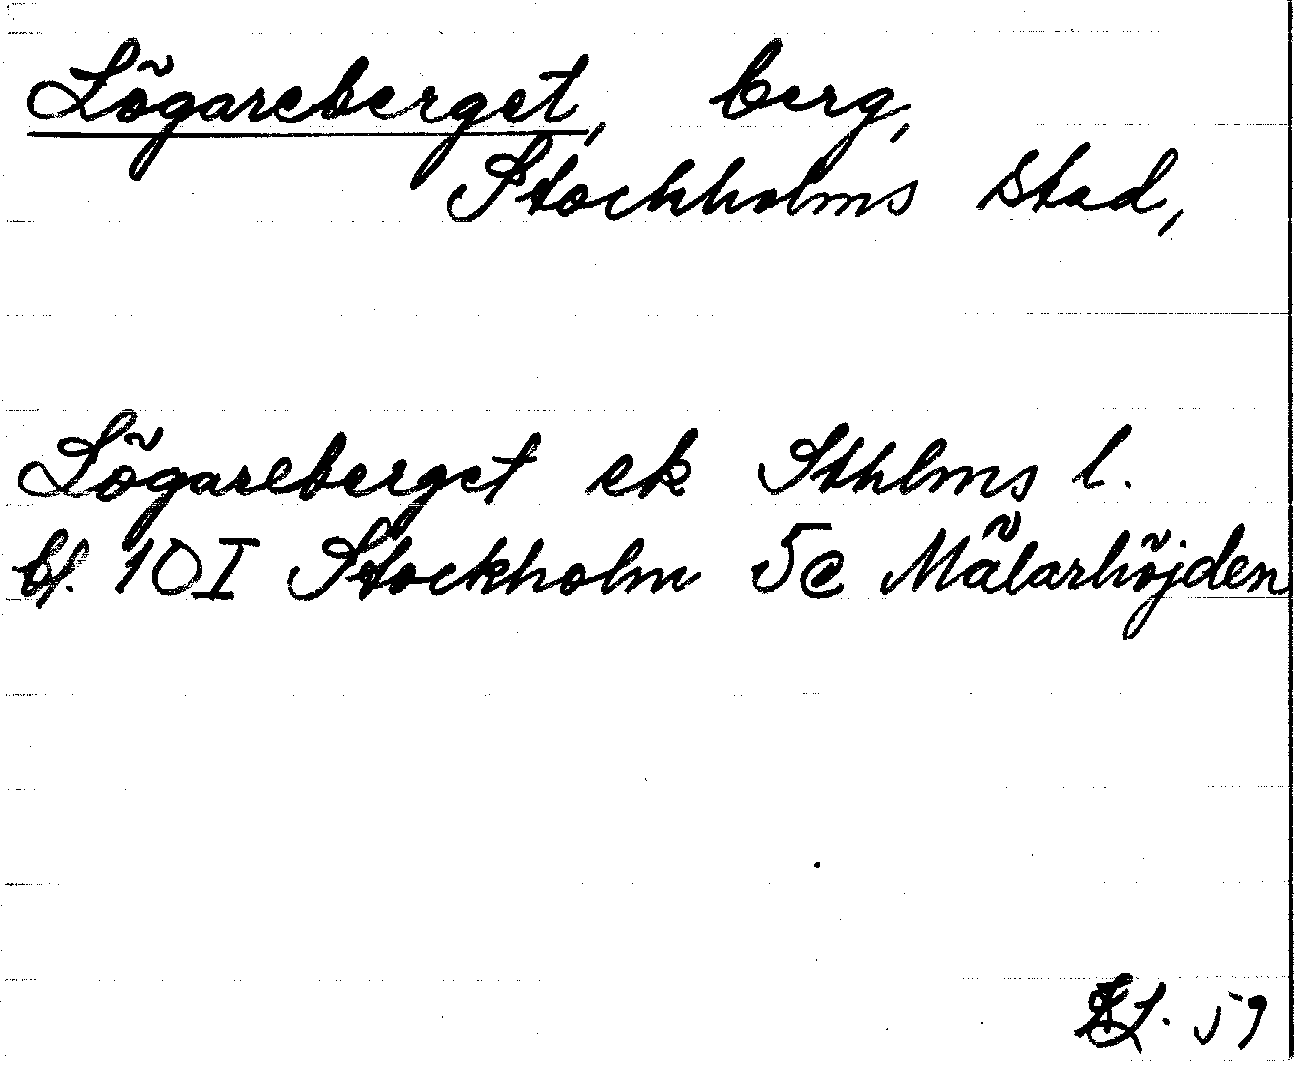 Lögareberget, berg,
Stockholms stad,
Lögareberget ek Sthlms l.
bl. 10I Stockholm 5c Mälarhöjden
59